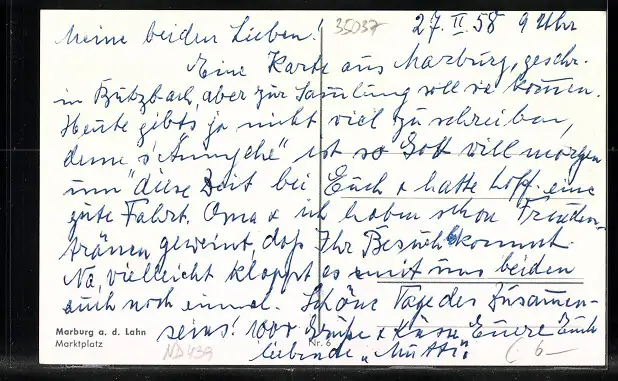 27. II. 58 9 Uhr
35037
Meine beiden Lieben!
Eine Karte aus Marburg, geschr.
in Butzbach, aber zur Samlung soll sie kommen.
Heute gibts ja nicht viel zu schreiben,
denn s'"Annche" ist so Gott will morgen
um diese Zeit bei Euch & hatte hoff. eine
gute Fahrt. Oma & ich haben schon Freuden-
tränen geweint, daß Ihr Besuch bekommt.
Na, vielleicht klappt es mit uns beiden
auch noch einmal. Schöne Tage des Zusammen-
seins! 1000 Grüße & Küsse Euere Euch
liebende "Mutti".
Marburg a. d. Lahn
Marktplatz
Nr. 6
ND439
6-